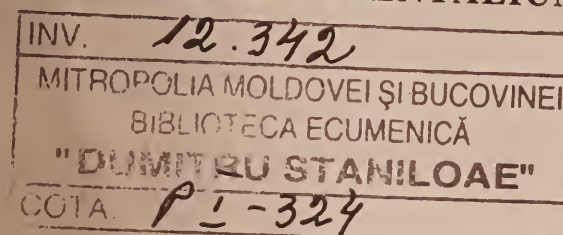 INV. 12.342
MITROPOLIA MOLDOVEI ŞI BUCOVINEI
BIBLIOTECA ECUMENICĂ
"DUMITRU STANILOAE"
COTA P I-324